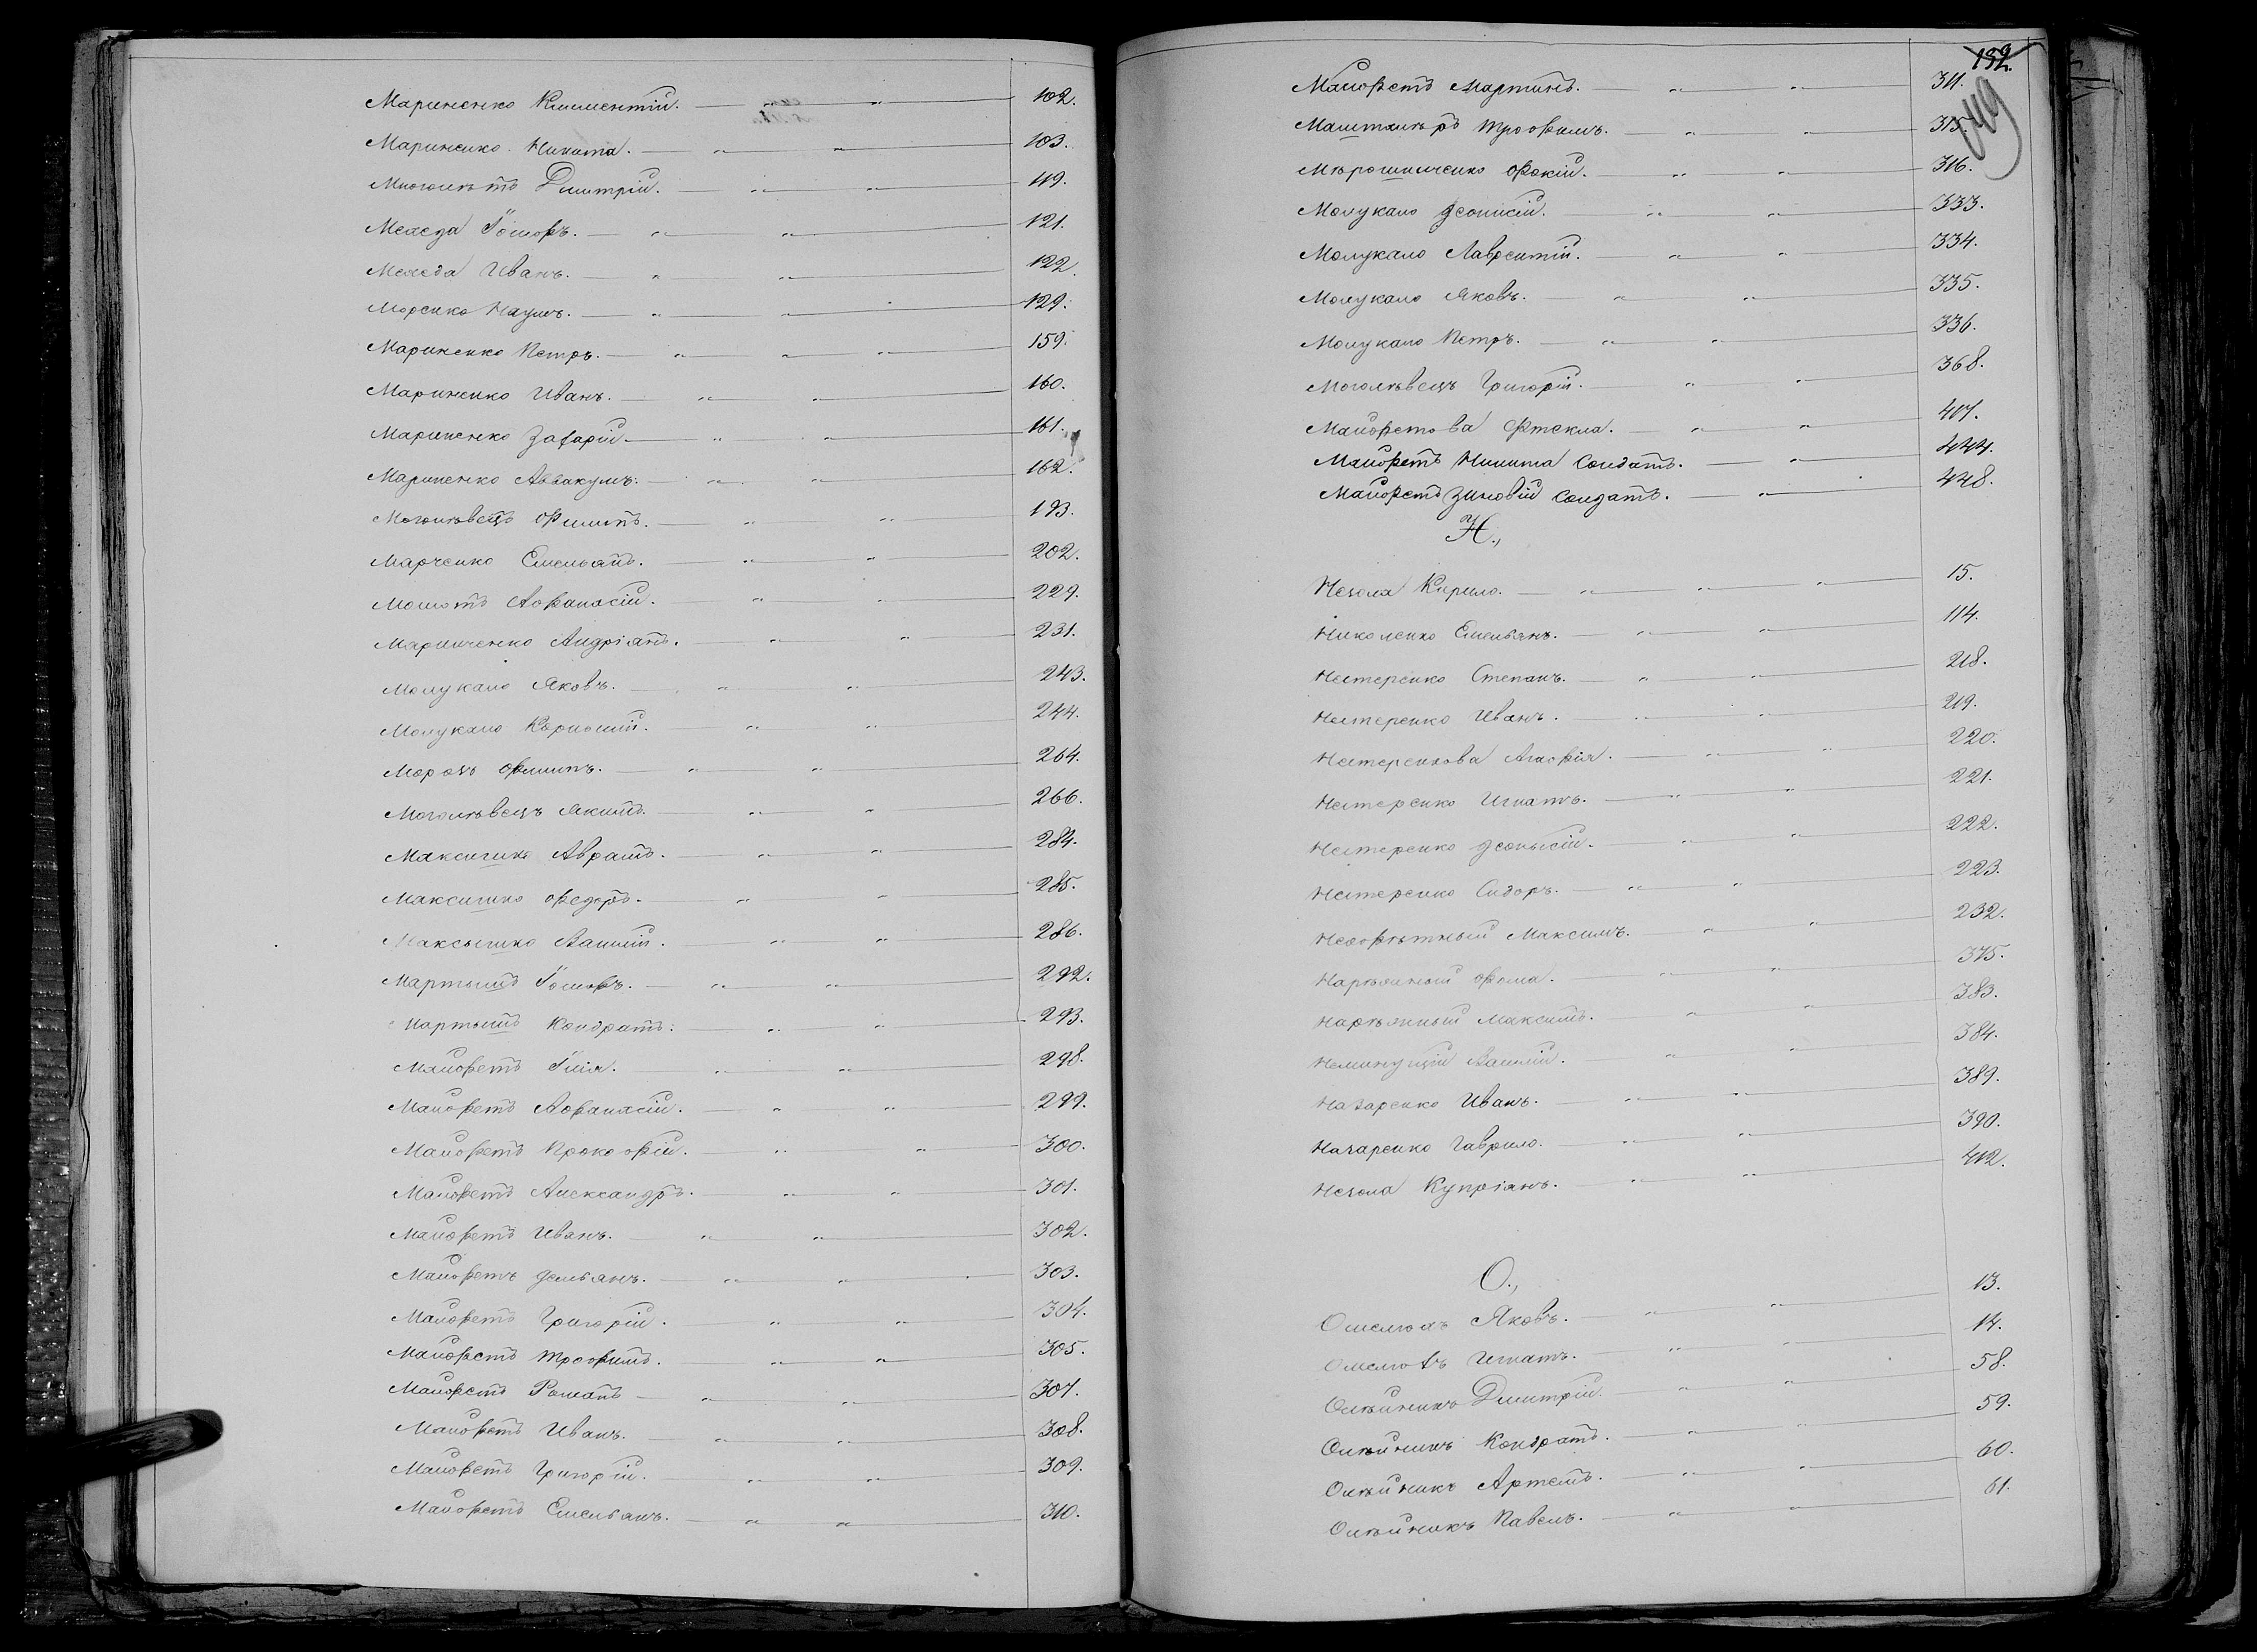 Мариненко Климентій. 102.
Мариненко Никита. 103.
Многолѣтъ Дмитрій. 119.
Меледа Іосифъ. 121.
Меледа Иванъ. 122.
Моренко Наумъ. 129.
Мариненко Петръ. 159.
Мариненко Иванъ. 160.
Мариненко Захарій 161.
Мариненко Аввакумъ. 162.
Моголѣвецъ Филипъ. 193.
Марченко Емельянъ. 202.
Афанасій. 229.
Маринченко Андріанъ. 231.
Молукало Яковъ. 243.
Молукало Корнилій. 244.
Морозъ Филипъ. 264.
Моголѣвецъ Якимъ. 266.
Максишко Аврамъ. 284.
Максишко Федоръ. 285.
Максишко Василій. 286.
Мартышъ Іосифъ. 292.
Мартышъ Кондратъ. 293.
Майфетъ Илія. 298.
Майфетъ Афанасій. 299.
Майфетъ Прокофій. 300.
Майфетъ Александръ. 301.
Майфетъ Иванъ. 302.
Майфетъ Демьянъ. 303.
Майфетъ Григорій. 304.
Майфетъ Трофимъ. 305.
Майфетъ Романъ 307.
Майфетъ Иванъ. 308.
Майфетъ Григорій. 309.
Майфетъ Емельянъ. 310.
132.
Майфетъ Мартинъ. 311.
Трофимъ. 315.
Мѣрошниченко Фокій. 316.
Молукало Деонисій. 333.
Молукало Лаврентій. 334.
Молукало Яковъ. 335.
Молукало Петръ. 336.
Моголѣвецъ Григорій. 368.
Майфетова Фтекла. 407.
Майфетъ Никита Солдатъ. 444.
Майфетъ Зиновій Солдатъ. 448.
Н.,
Незола Кирило. 15.
Николенко Емельянъ. 114.
Нестеренко Степанъ. 218.
Нестеренко Иванъ. 219.
Нестеренкова Агафія. 220.
Нестеренко Игнатъ. 221.
Нестеренко Деонысій. 222.
Нестеренко Сидоръ. 223.
Максимъ. 232.
Нарѣжный Фома. 375.
Нарѣжный Максимъ. 383.
Неминущій Василій. 384.
Назаренко Иванъ. 389.
Назаренко Гаврило. 390.
Незола Купріанъ. 412.
О.,
Омелюхъ Яковъ. 13.
Омелюхъ Игнатъ. 14.
Олѣйникъ Дмитрій. 58.
Олѣйникъ Кондратъ. 59.
Олѣйникъ Артемъ. 60.
Олѣйникъ Павелъ. 61.